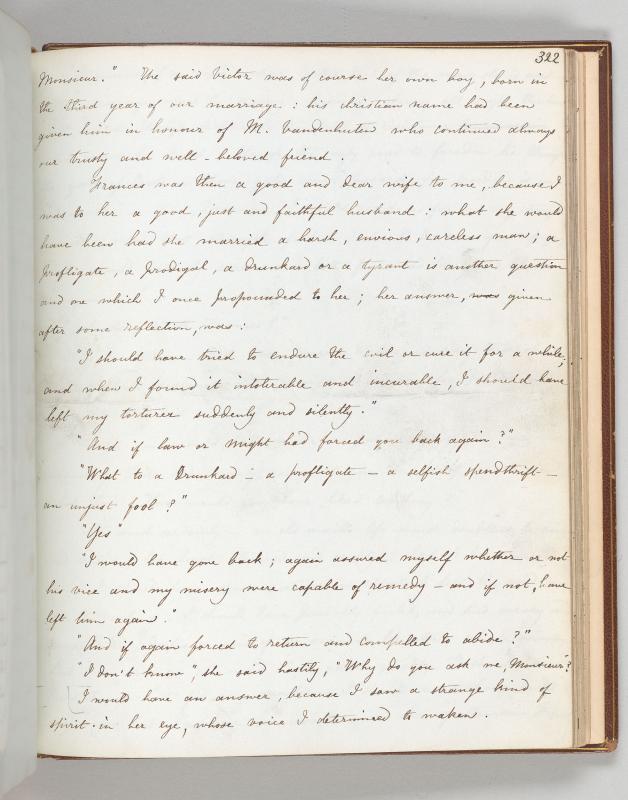 322
Monsieur." The said Victor was of course her own boy, born in
the third year of our marriage : his christian name had been
given him in honour of M. Vandenhuten who continued always
our trusty and well-beloved friend.
Frances was then a good and dear wife to me, because I
was to her a good, just and faithful husband : what she would
have been had she married a harsh, envious, careless man; a
profligate, a prodigal, a drunkard or a tyrant is another question
and one which I once propounded to her; her answer, was given
after some reflection, was :
"I should have tried to endure the evil or cure it for a while;
and when I found it intolerable and incurable, I should have
left my torturer suddenly and silently."
"And if law or might had forced you back again?"
"What to a Drunkard - a profligate - a selfish spendthrift -
an unjust fool?"
"Yes"
"I would have gone back; again assured myself whether or not
his vice and my misery were capable of remedy - and if not, have
left him again."
"And if again forced to return and compelled to abide?"
"I don't know", she said hastily, "Why do you ask me, Monsieur"?
I would have an answer, because I saw a strange kind of
spirit in her eye, whose voice I determined to waken.